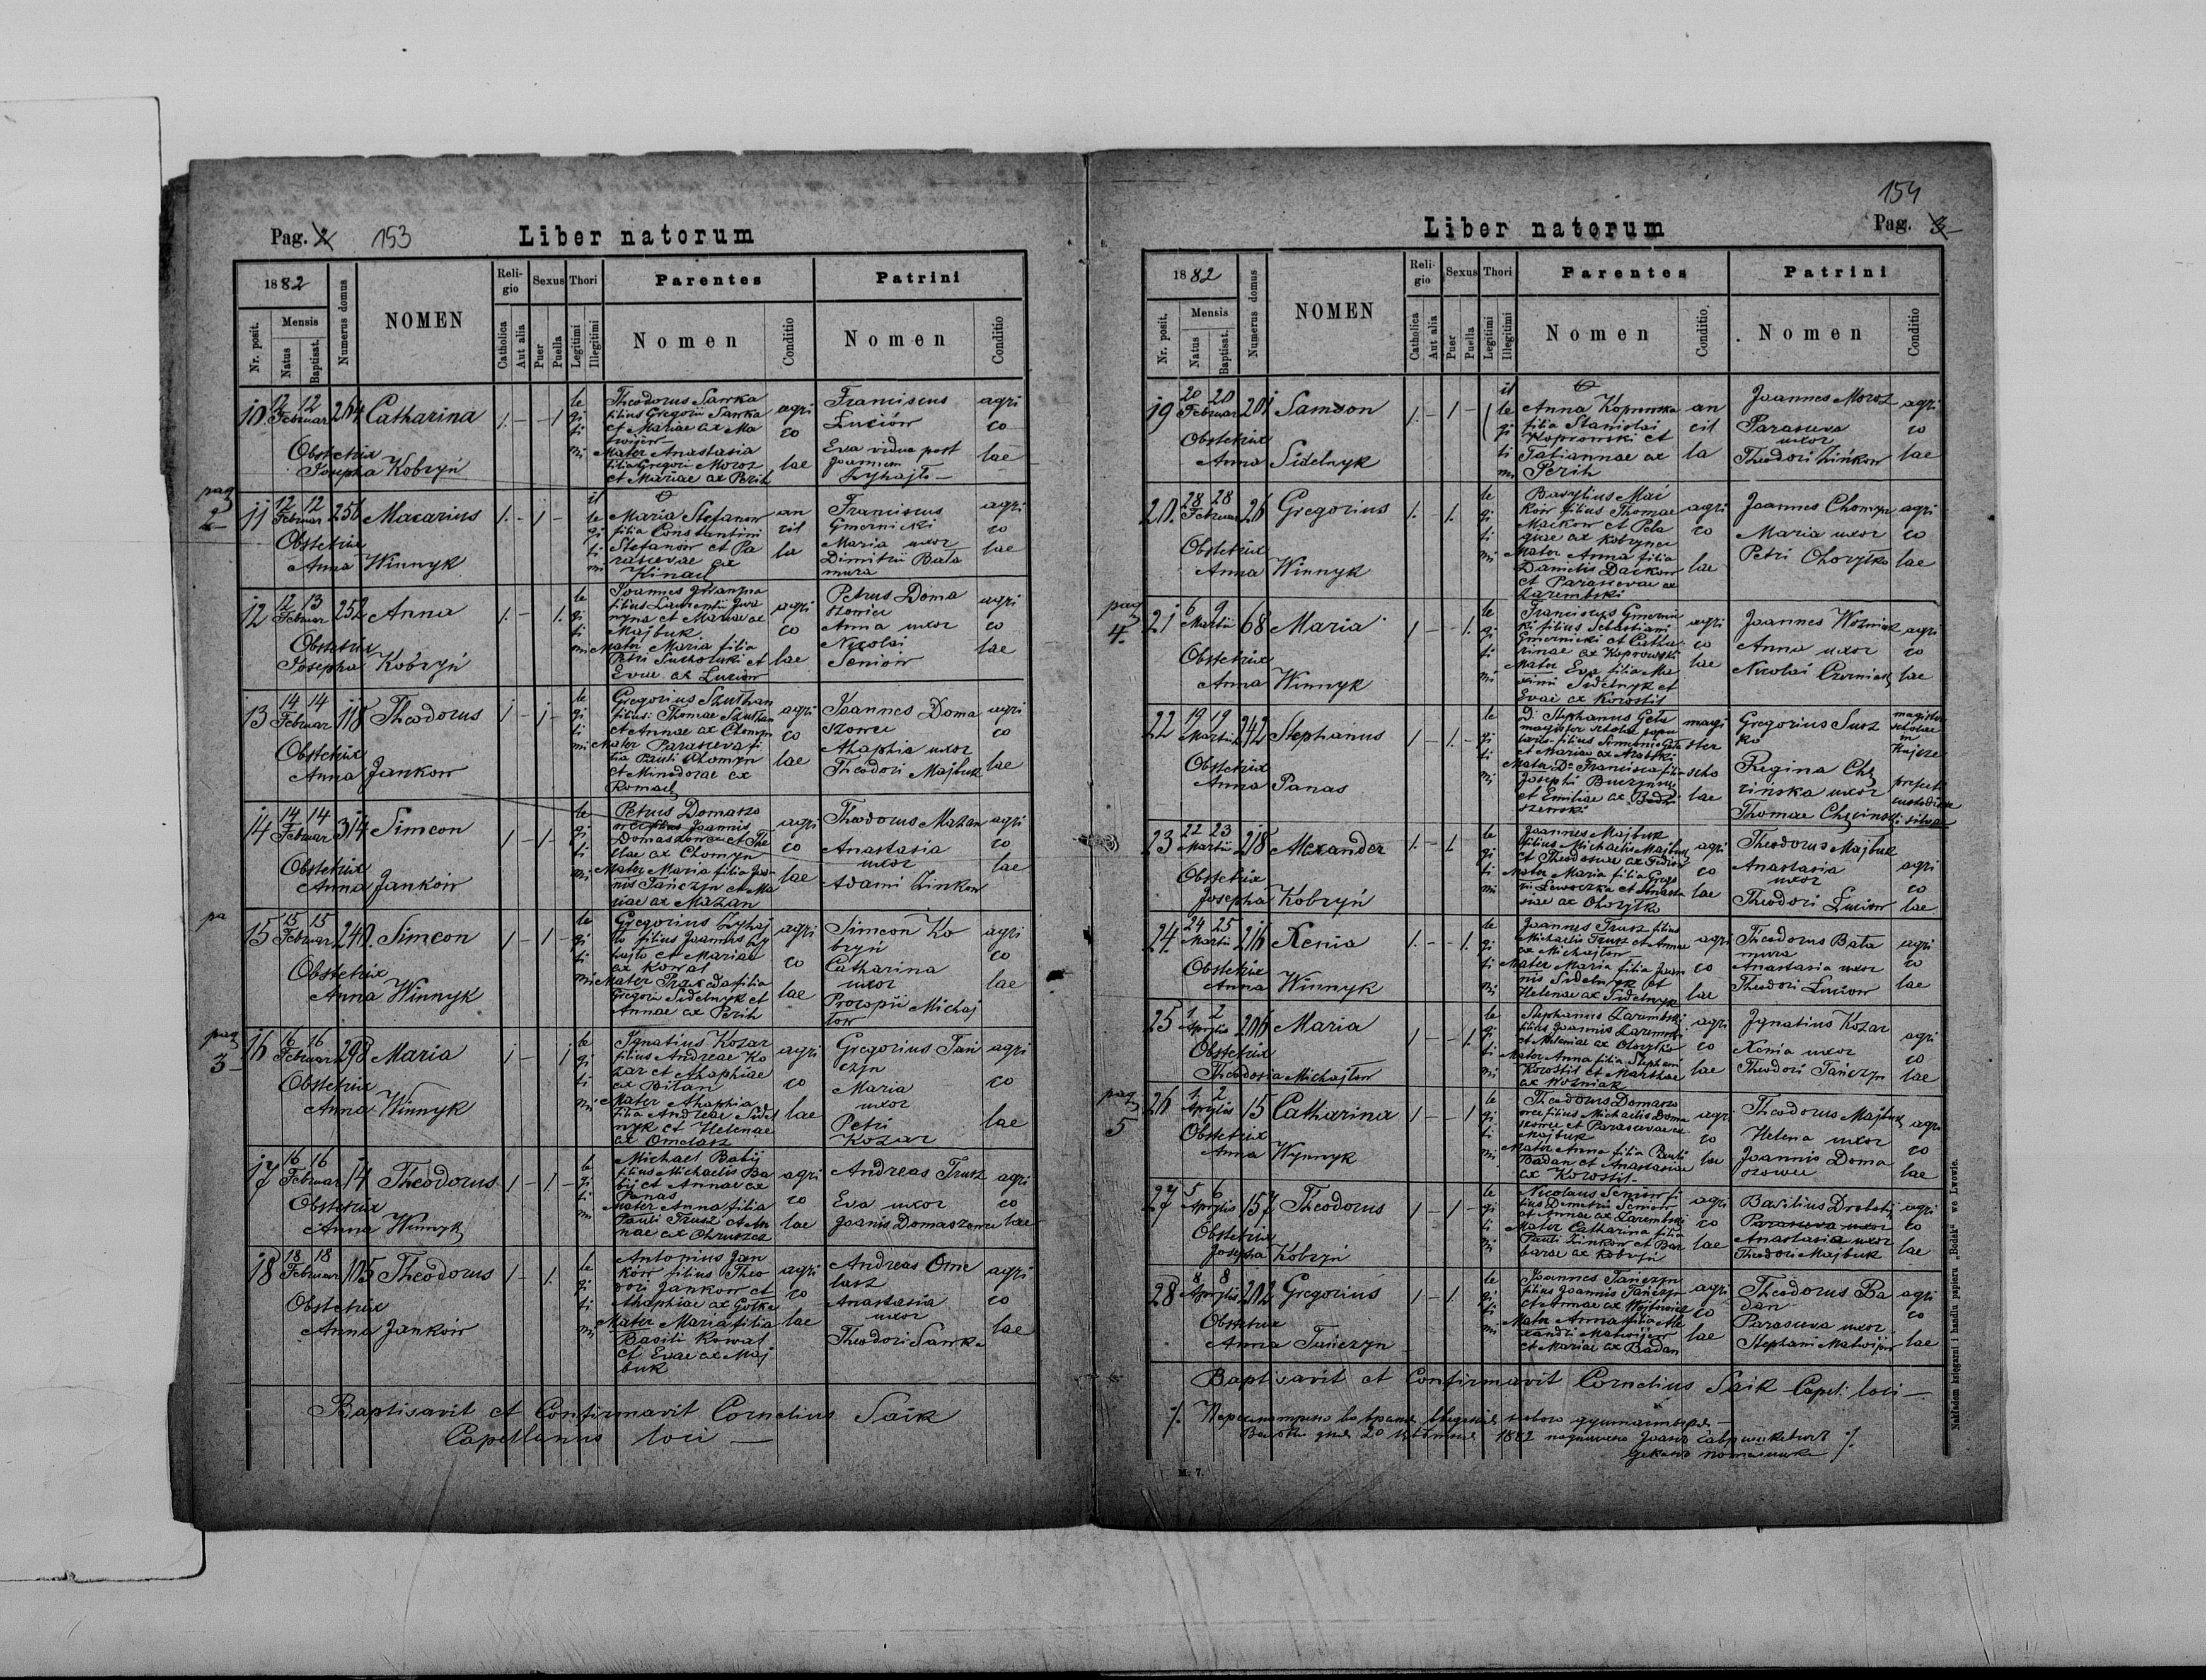 Pag. 2 153 Liber natorum
1882
Nr. posit.
Mensis
Natus
Baptisat.
Numerus domus
NOMEN
Religio
Catholica
Aut alia
Sexus
Puer
Puella
Thori
Legitimi
Illegitimi
Parentes
Nomen
Conditio
Patrini
Nomen
Conditio
10 12 12 Februar 264 Catharina 1. - - 1 legitimi
Obstetrix
Josepha Kobryń
Theodorus Sawka
filius Gregorii Sawka
et Mariae ex Ma
twijew
Mater Anastasia
filia Gregorii Moroz
et Mariae ex Perih
agricolae
Franciscus
Luciów
Eva vidua post
Joannem
Zyhajło
agricolae
pag 2
11 12 12 Februar 256 Macarius 1. - 1 - illegitimi
Obstetrix
Anna Winnyk
Maria Stefanow
filia Constantini
Stefanow et Pa
rascevae ex
Kinach
ancilla
Franciscus
Gmernicki
Maria uxor
Dimitrii Bała
mura
agricolae
12 12 13 Februar 252 Anna 1. - - 1. legitimi
Obstetrix
Josepha Kobryń
Joannes
filius Laurentii
et Mariae ex
Majbuk
Mater Maria filia
Petri Sucholuski et
Evae ex Luciow
agricolae
Petrus Doma
szowec
Anna uxor
Nicolai
Seniów
agricolae
13 14 14 Februar 118 Theodorus 1 - 1 - legitimi
Obstetrix
Anna Jankow
Gregorius Szułhan
filius Thomae Szułhan
et Annae ex Chomyn
Mater Parasceva fi
lia Pauli Chomyn
et Minodorae ex
Romach
agricolae
Joannes Doma
szowec
Ahaphia uxor
Theodori Majbuk
agricolae
14 14 14 Februar 314 Simeon 1 - 1 - legitimi
Obstetrix
Anna Janków
Petrus Domaszo
wec filius Joannis
Domaszowec et The
clae ex Chomyn
Mater Maria filia Joan
nis Tańczyn et Ma
riae ex Mazan
agricolae
Theodorus Mazan
Anastasia
uxor
Adami Zinkow
agricolae
pa
15 15 15 Februar 240. Simeon 1 - 1 - legitimi
Obstetrix
Anna Winnyk
Gregorius Zyhaj
ło filius Joannis Zy
hajło et Mariae
ex Kowal
Mater Praxeda filia
Gregorii Sidelnyk et
Annae ex Perih
agricolae
Simeon Ko
bryń
Catharina
uxor
Procopii Michaj
łow
agricolae
pag 3
16 16 16 Februar 298 Maria 1 - - 1 legitimi
Obstetrix
Anna Winnyk
Ignatius Kozar
filius Andreae Ko
zar et Ahaphiae
ex Biłan
Mater Ahaphia
filia Andreae Sidel
nyk et Helenae
ex Omelasz
agricolae
Gregorius Tań
czyn
Maria
uxor
Petri
Kozar
agricolae
17 16 16 Februar 14 Theodorus 1 - 1 - legitimi
Obstetrix
Anna Winnyk
Michael Babij
filius Michaelis Ba
bij et Annae ex
Panas
Mater Anna filia
Pauli Trusz et An
nae ex Ohruszcz
agricolae
Andreas Trusz
Eva uxor
Joannis Domaszowec
agricolae
18 18 18 Februar 105 Theodorus 1 - 1. legitimi
Obstetrix
Anna Jankow
Antonius Jan
ków filius Theo
dori Jankow et
Ahaphiae ex Gołka
Mater Maria filia
Basili Kowal
et Evae ex Maj
buk
agricolae
Andreas Ome
lasz
Anastasia
uxor
Theodori Sawka
agricolae
Baptisavit et Confirmavit Cornelius Saik
Capellanus loci —
154
Liber natorum Pag. 3
1882
Nr. posit.
Mensis
Natus
Baptisat.
Numerus domus
NOMEN
Religio
Catholica
Aut alia
Sexus
Puer
Puella
Thori
Legitimi
Illegitimi
Parentes
Nomen
Conditio.
Patrini
Nomen
Conditio
19 20 20 Februar 201 Samson 1. - 1 - illegitimi
Obstetrix
Anna Sidelnyk
Anna Koprowska
filia Stanislai
Koprowski et
Tatiannae ex
Perih
ancilla
Joannes Moroz
Parasceva
uxor
Theodori Zińkow
agricolae
20. 28 28 Februar 26 Gregorius 1. - 1. legitimi
Obstetrix
Anna Winnyk
Basylius Mać
ków filius Thomae
Maćkow et Pela
giae ex Kobryn
Mater Anna filia
Danielis Dackow
et Parascevae ex
Zarembski
agricolae
Joannes Chomyn
Maria uxor
Petri Chorytko
agricolae
pag 4.
21 6 9 Martii 68 Maria 1 - - 1. legitimi
Obstetrix
Anna Winnyk
Franciscus Gmernic
ki filius Sebastiani
Gmernicki et Catha
rinae ex Koprowski
Mater Eva filia Ma
ximi Sidelnyk et
Evae ex Korostil
agricolae
Joannes Wozniak
Anna uxor
Nicolai Czerniach
agricolae
22 19 19 Martii 242 Stephanus 1 - 1. - legitimi
Obstetrix
Anna Panas
D. Stephanus Geła
magister scholae popu
laris filius Simeonis Geła
et Mariae ex
Mater Da Francisca filia
Josephi
et Emiliae ex
magister scholae
Gregorius Susz
ko
Regina Chę
cinska uxor
Thomae Chęcinski
magister
scholae
in
23 22 23 Martii 218 Alexander 1. - 1. legitimi
Obstetrix
Josepha Kobryń
Joannes Majbuk
filius Michaelis Majbuk
et Theodosiae ex Fediow
Mater Maria filia Grego
rii Lewoczka et Anasta
siae ex Chorytko
agricolae
Theodorus Majbuk
Anastasia
uxor
Theodori Luciow
agricolae
24. 24 25 Martii 216 Xenia 1. - - 1. legitimi
Obstetrix
Anna Winnyk
Joannes Trusz filius
Michaelis Trusz et Annae
ex Michajłow
Mater Maria filia Joan
nis Sidelnyk et
Helenae ex Sidelnyk
agricolae
Theodorus Bała
mura
Anastasia uxor
Theodori Luciow
agricolae
25 1 2 Aprylis 206 Maria 1 - - 1. legitimi
Obstetrix
Theodosia Michajłow
Stephanus Zarembski
filius Joannis Zarembski
et Melaniae ex Chorytko
Mater Anna filia Stephani
Korostil et Marthae
ex Wozniak
agricolae
Ignatius Kozar
Xenia uxor
Theodori Tańczyn
agricolae
pag 5
26 1 2 Aprylis 15 Catharina 1 - - 1 legitimi
Obstetrix
Anna Wynnyk
Theodorus Domaszo
wec filius Michaelis Doma
szowec et Parascevae ex
Majbuk
Mater Anna filia Pauli
Badan et Anastasiae
ex Korostil
agricolae
Theodorus Majbuk
Helena uxor
Joannis Doma
szowec
agricolae
27 5 6 Aprylis 157 Theodorus 1 - 1 - legitimi
Obstetrix
Josepha Kobryń
Nicolaus Seniow fi
lius Demetrii Seniow
et Annae ex Zarembski
Mater Catharina filia
Pauli Zinkow et Bar
barae ex Kobryń
agricolae
Basilius Drobotij
Parasceva uxor
Anastasia uxor
Theodori Majbuk
agricolae
28 8 8 Aprylis 202 Gregorius 1 - 1. legitimi
Obstetrix
Anna Tańczyn
Joannes Tańczyn
filius Joannis Tańczyn
et Annae ex Wojtowicz
Mater Anna filia Ale
xandri Matwijew
et Mariae ex Badan
agricolae
Theodorus Ba
dan
Parasceva uxor
Stephani Matwijew
agricolae
Baptisavit et Confirmavit Cornelius Saik Capel: loci —
1882
M. 7.
Nakładem księgarni i handlu papieru „Bodek" we Lwowie.